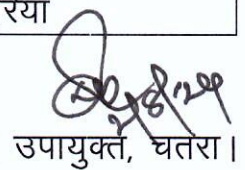 रया
उपायुक्त, चतरा।